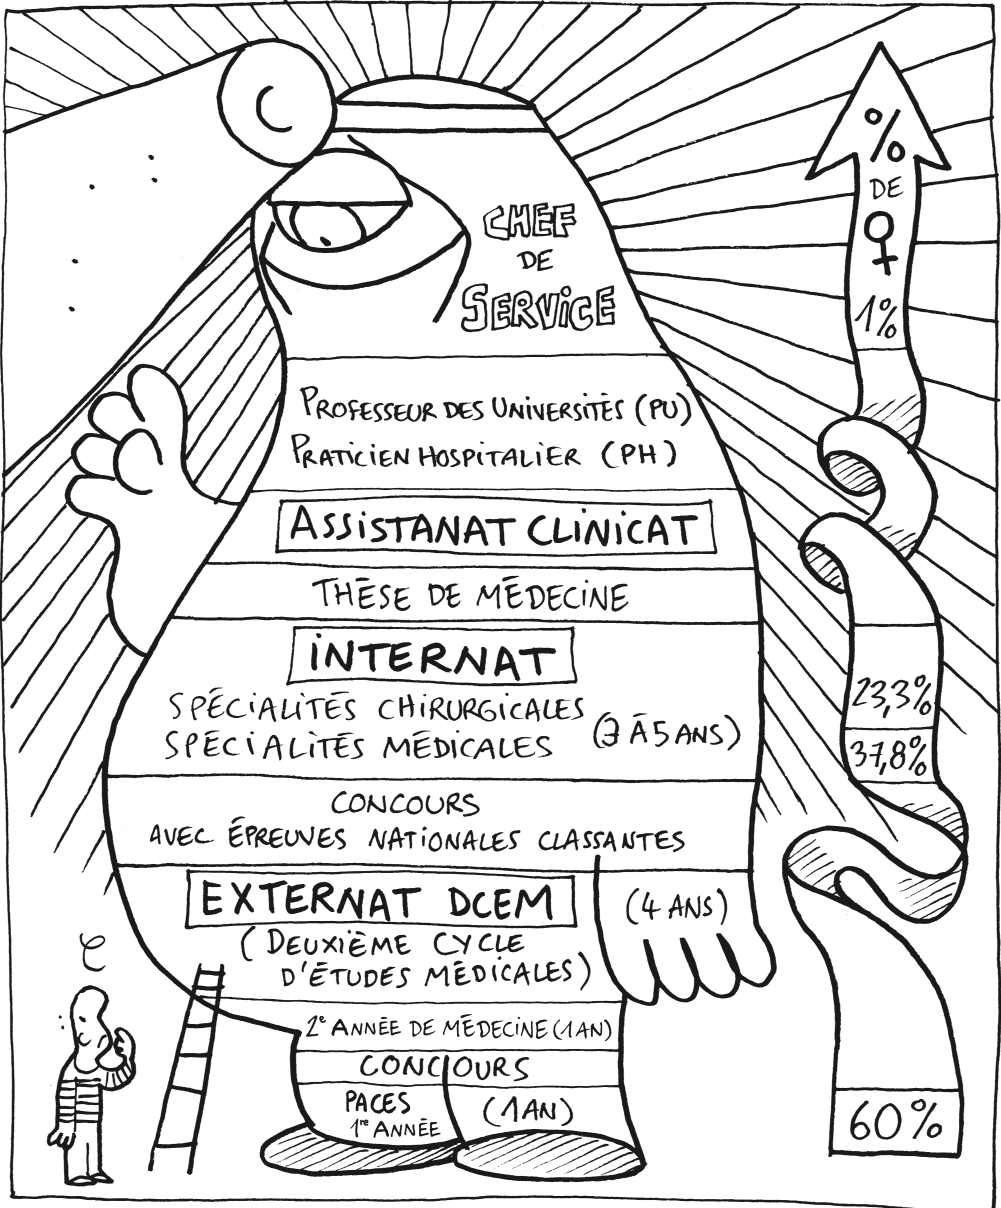 CHEF
DE
SERVICE
PROFESSEUR DES UNIVERSITÉS (PU)
PRATICIEN HOSPITALIER (PH)
ASSISTANAT CLINICAT
THÈSE DE MÉDECINE
INTERNAT
SPÉCIALITÉS CHIRURGICALES
SPÉCIALITÉS MÉDICALES
(3 À 5 ANS)
CONCOURS
AVEC ÉPREUVES NATIONALES CLASSANTES
EXTERNAT DCEM
(4 ANS)
(DEUXIÈME CYCLE
D'ÉTUDES MÉDICALES)
2e ANNÉE DE MÉDECINE (1 AN)
CONCOURS
PACES
1re ANNÉE
(1 AN)
%
DE
♀
1%
23,3%
37,8%
60%